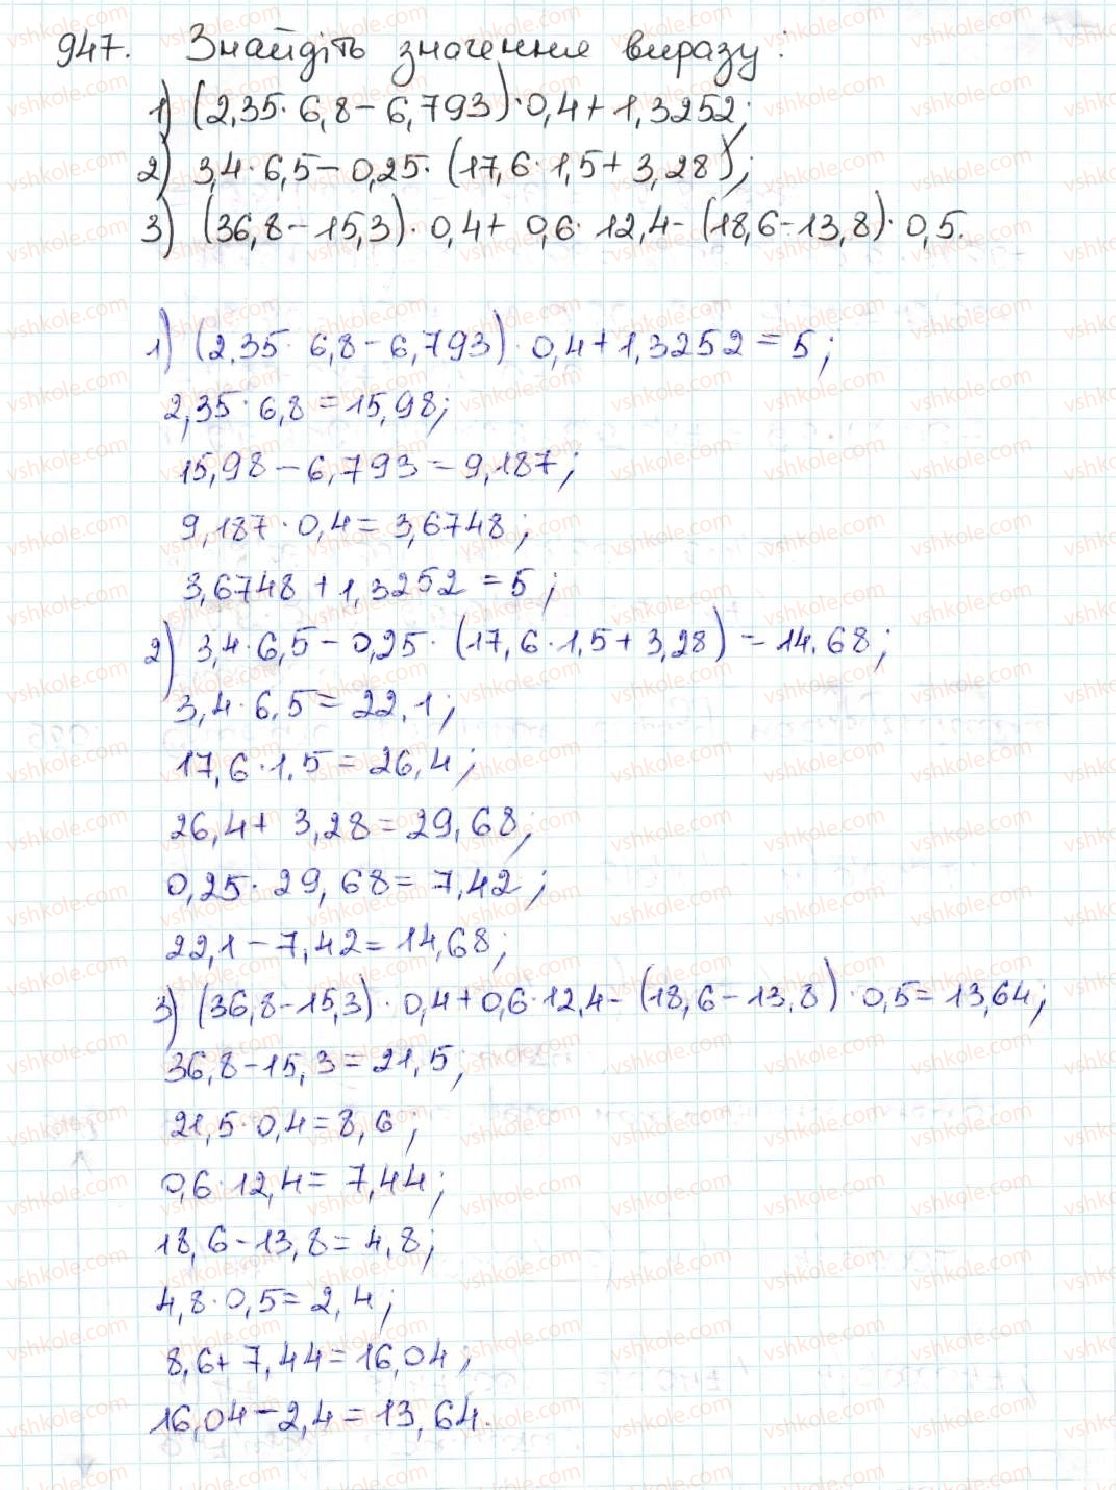 947. Знайдіть значення виразу:
1) (2,35·6,8-6,793)·0,4+1,3252;
2) 3,4·6,5-0,25·(17,6·1,5+3,28);
3) (36,8-15,3)·0,4+0,6·12,4-(18,6-13,8)·0,5.
1) (2,35·6,8-6,793)·0,4+1,3252=5;
2,35·6,8=15,98;
15,98-6,793=9,187;
9,187·0,4=3,6748;
3,6748+1,3252=5;
2) 3,4·6,5-0,25·(17,6·1,5+3,28)=14.68;
3,4·6,5=22,1;
17,6·1,5=26,4;
26,4+3,28=29,68;
0,25·29,68=7,42;
22,1-7,42=14,68;
3) (36,8-15,3)·0,4+0,6·12,4-(18,6-13,8)·0,5=13,64;
36,8-15,3=21,5;
21,5·0,4=8,6;
0,6·12,4=7,44;
18,6-13,8=4,8;
4,8·0,5=2,4;
8,6+7,44=16,04;
16,04-2,4=13,64.